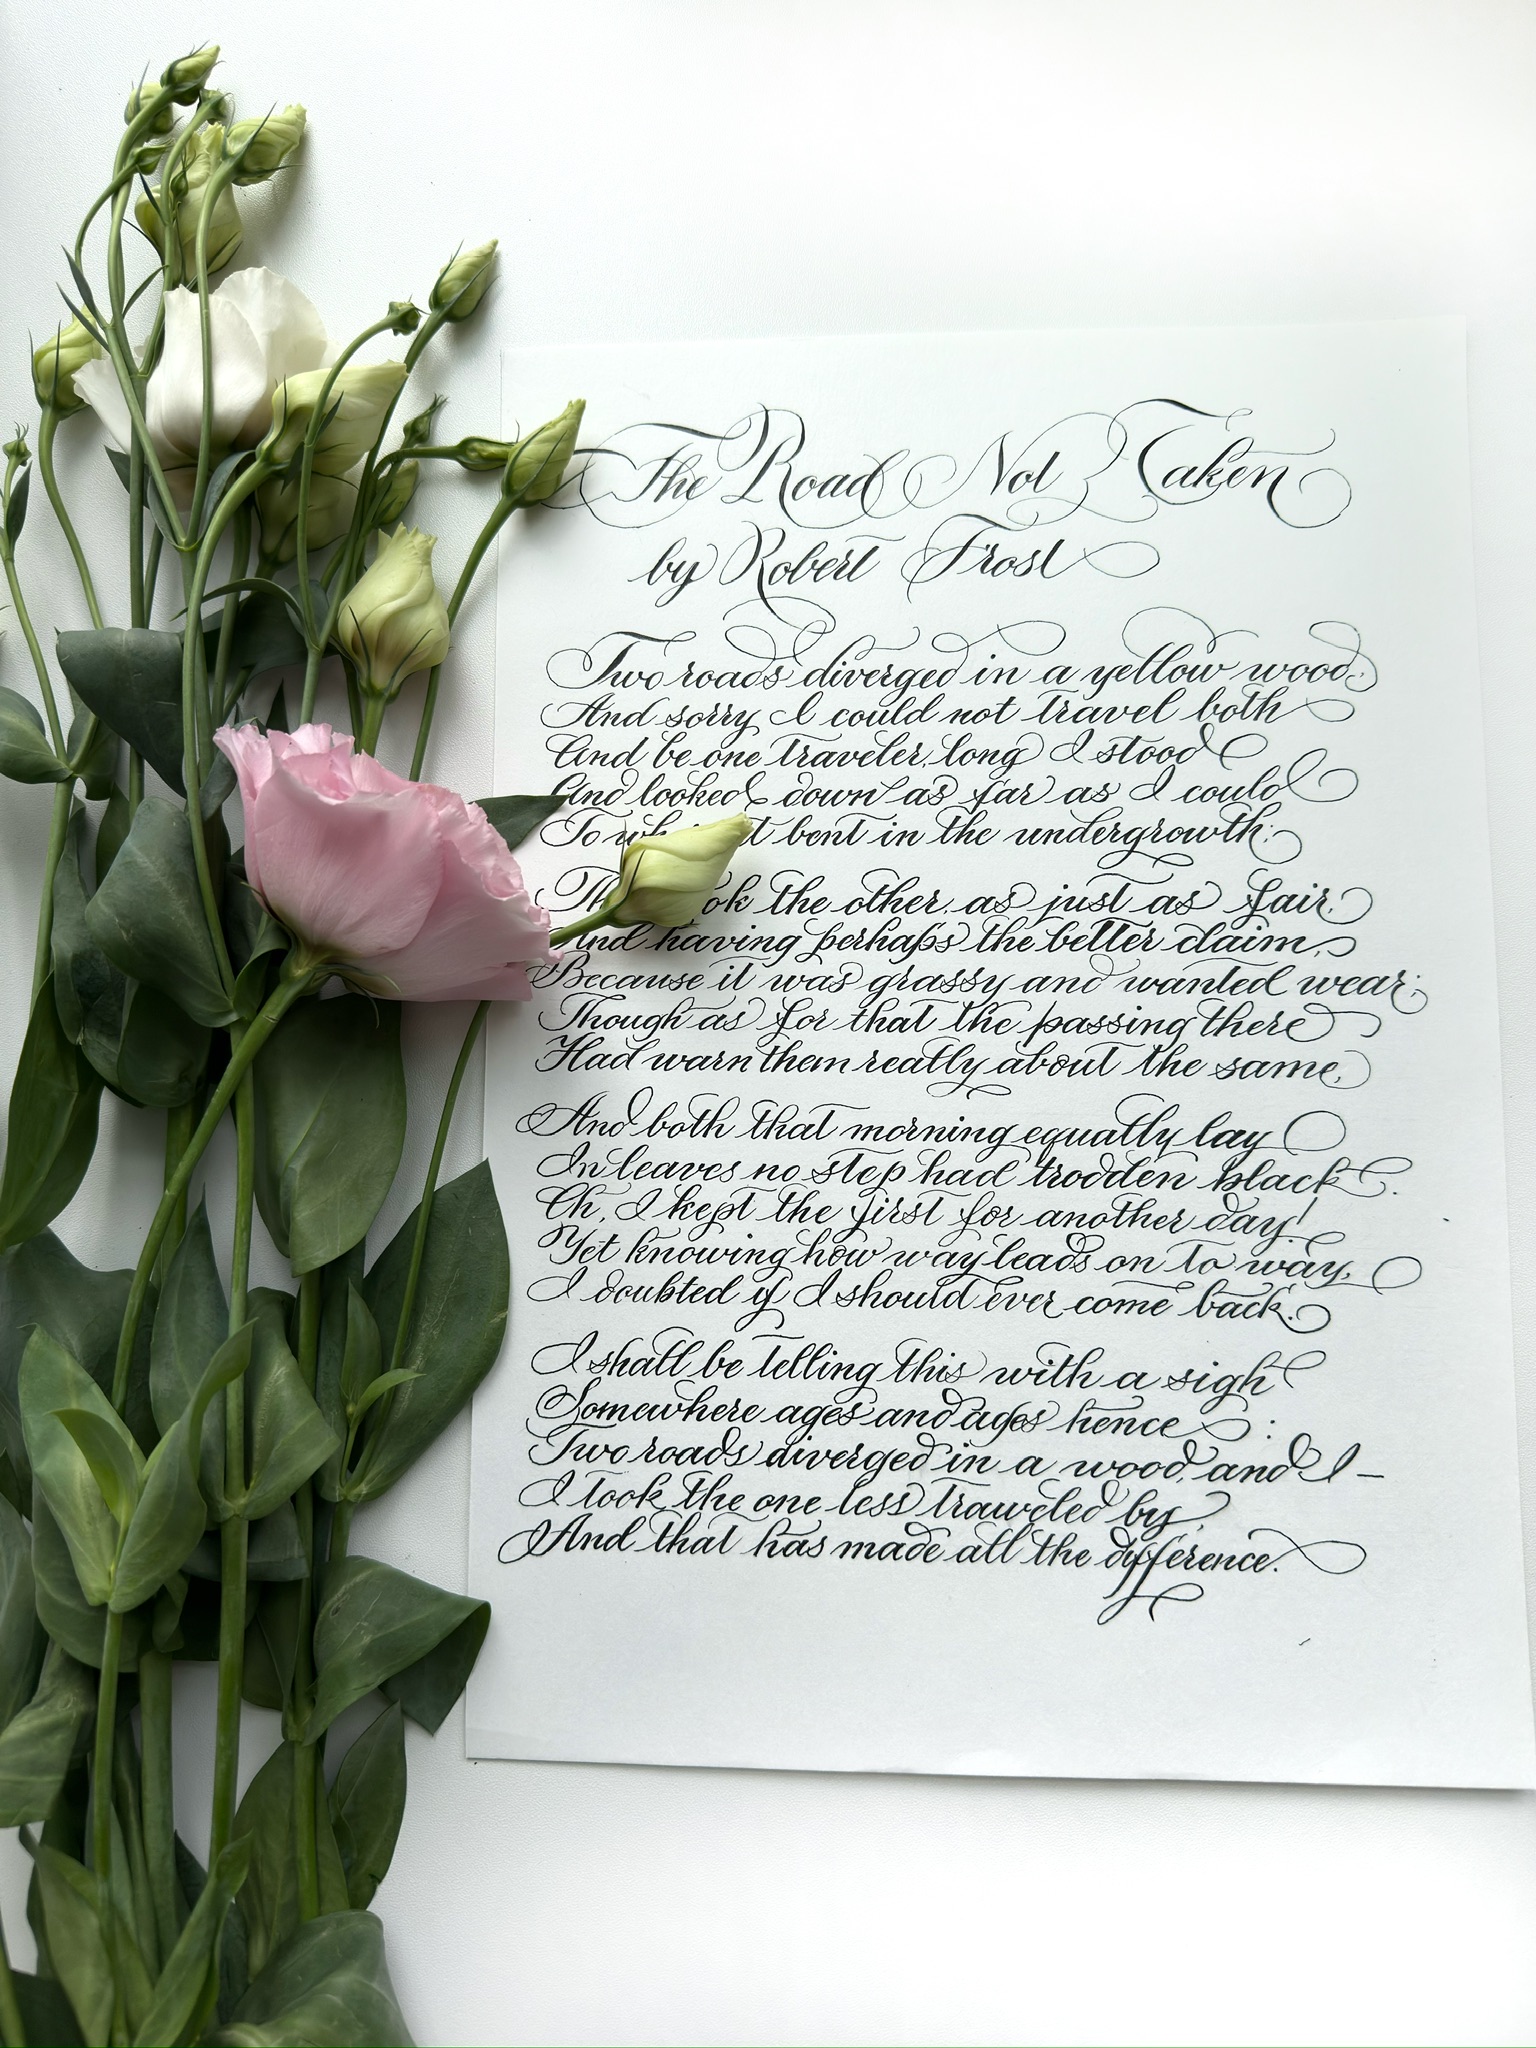 The Road Not Taken
by Robert Frost
Two roads diverged in a yellow wood,
And sorry I could not travel both
And be one traveler, long I stood
And looked down as far as I could
To bent in the undergrowth;
the other, as just as fair,
And having perhaps the better claim,
Because it was grassy and wanted wear;
Though as for that the passing there
Had warn them really about the same,
And both that morning equally lay
In leaves no step had trodden black.
Oh, I kept the first for another day!
Yet knowing how way leads on to way,
I doubted if I should ever come back.
I shall be telling this with a sigh
Somewhere ages and ages hence :
Two roads diverged in a wood, and I –
I took the one less traveled by,
And that has made all the difference.